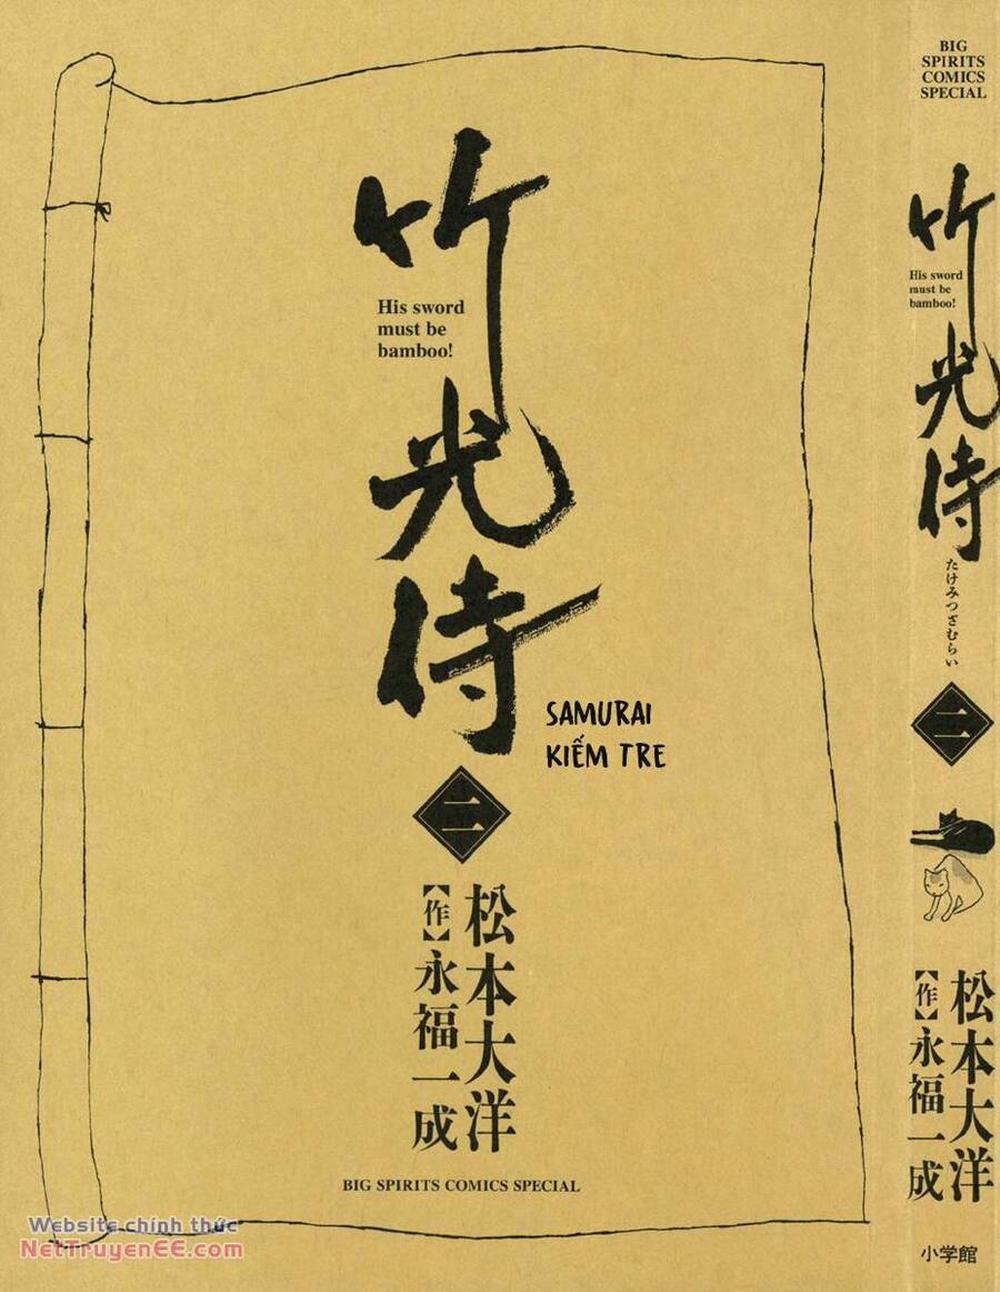 竹光侍
His sword
must be
bamboo!
SAMURAI
KIẾM TRE
二
松本大洋
【作】永福一成
BIG SPIRITS COMICS SPECIAL
Website chính thức
NetTruyenEE.com
BIG
SPIRITS
COMICS
SPECIAL
竹光侍
His sword
must be
bamboo!
たけみつざむらい
二
松本大洋
【作】永福一成
小学館